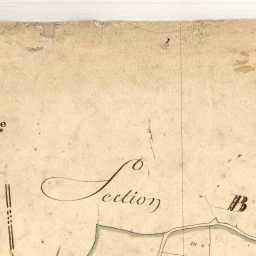 e
Section
B